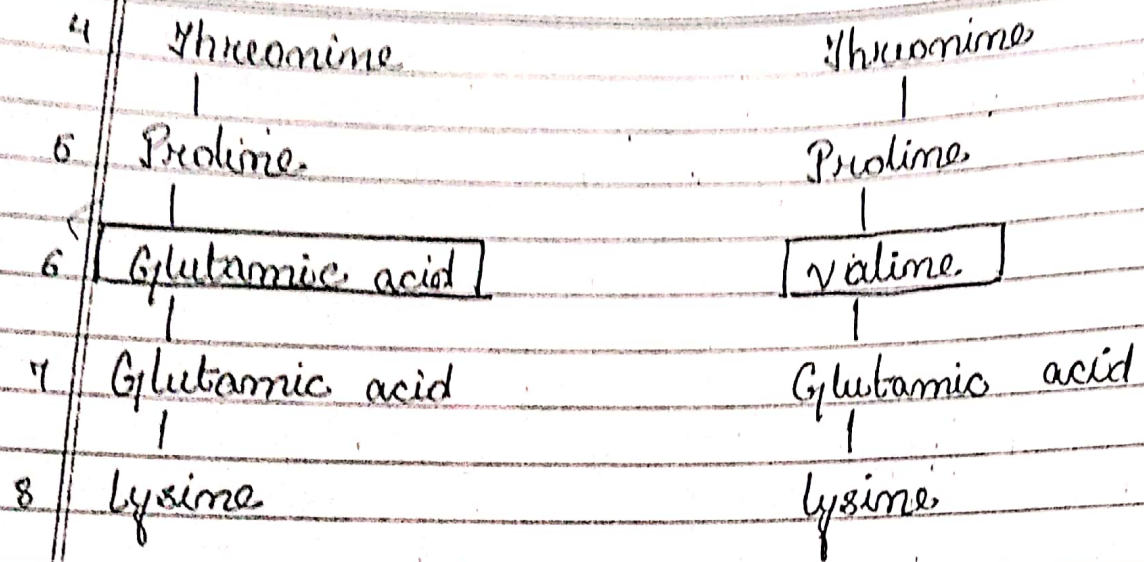 4 Threonine Threonine
5 Proline Proline
6 Glutamic acid Valine
7 Glutamic acid Glutamic acid
8 Lysine Lysine